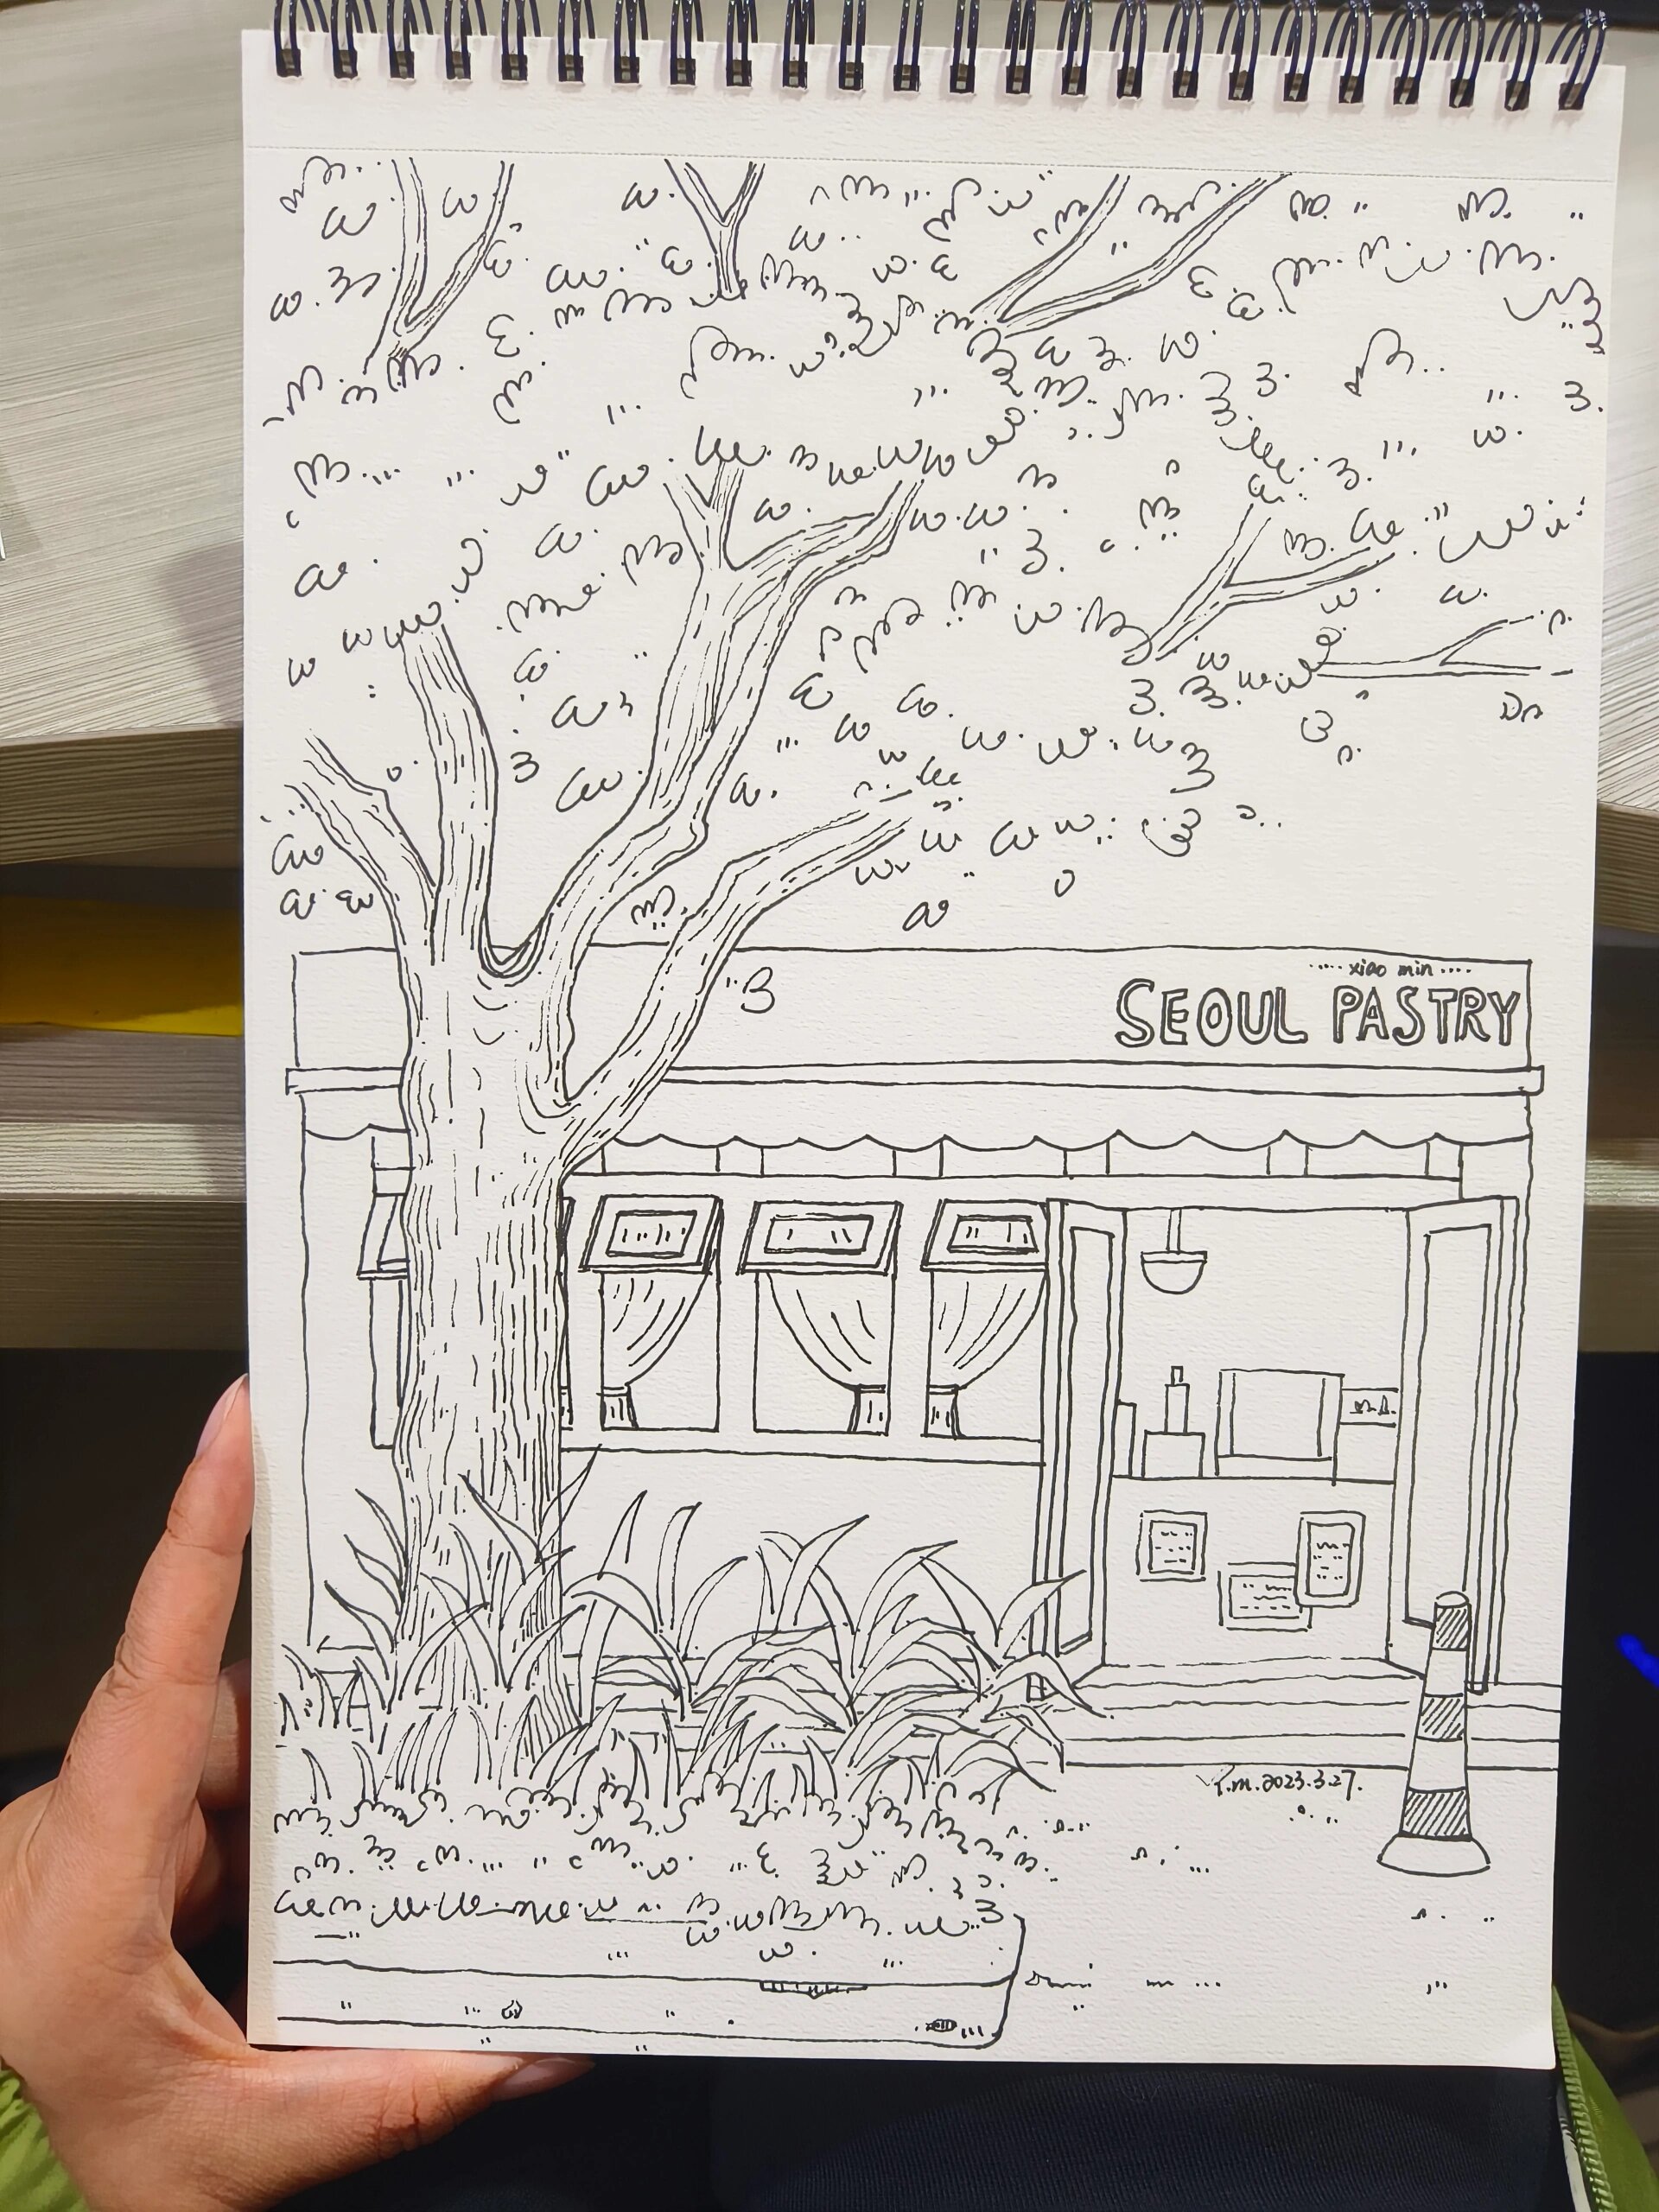 xiao min
SEOUL PASTRY
Y.m.2023.3.27.